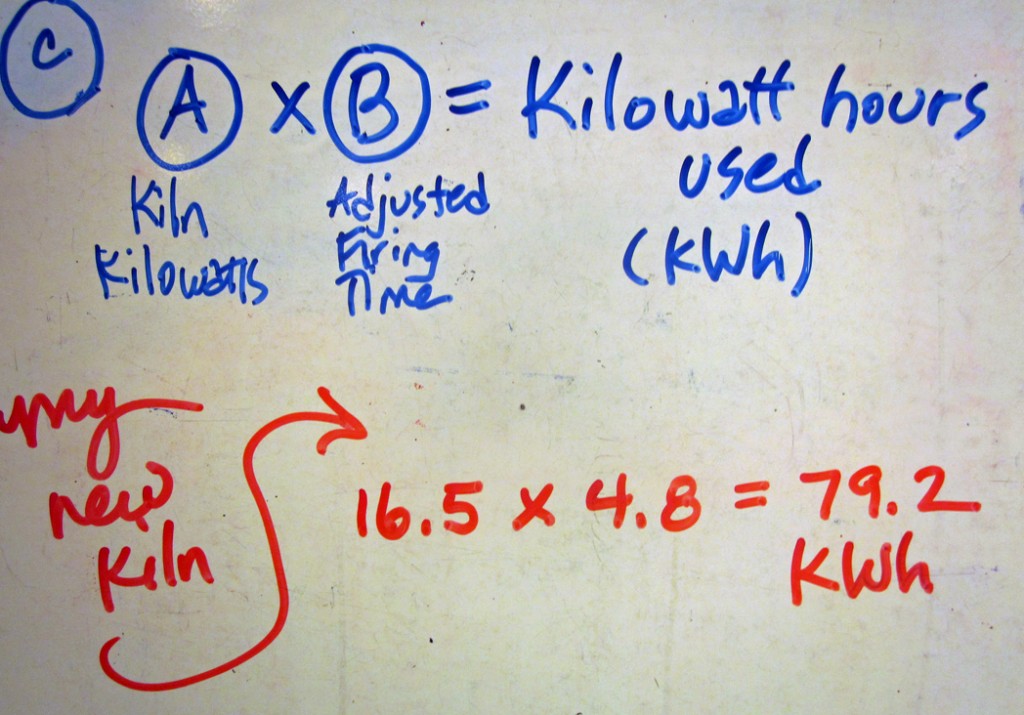 C
A x B = Kilowatt hours
used
(KWh)
Kiln
Kilowatts
Adjusted
Firing
Time
my
new
Kiln
16.5 x 4.8 = 79.2
KWh